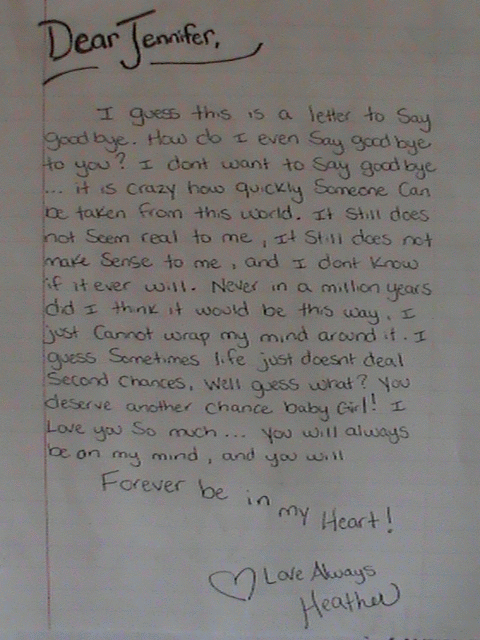 Dear Jennifer,
I guess this is a letter to Say
goodbye. How do I even Say goodbye
to you? I dont want to Say goodbye
... it is crazy how quickly Someone Can
be taken from this world. It Still does
not Seem real to me, It Still does not
make Sense to me, and I dont Know
if it ever will. Never in a million years
did I think it would be this way. I
just Cannot wrap my mind around it. I
guess Sometimes life just doesnt deal
Second chances, Well guess what? You
deserve another chance baby Girl! I
Love you So much... you will always
be on my mind, and you will
Forever be in my Heart!
♡ Love Always
Heather